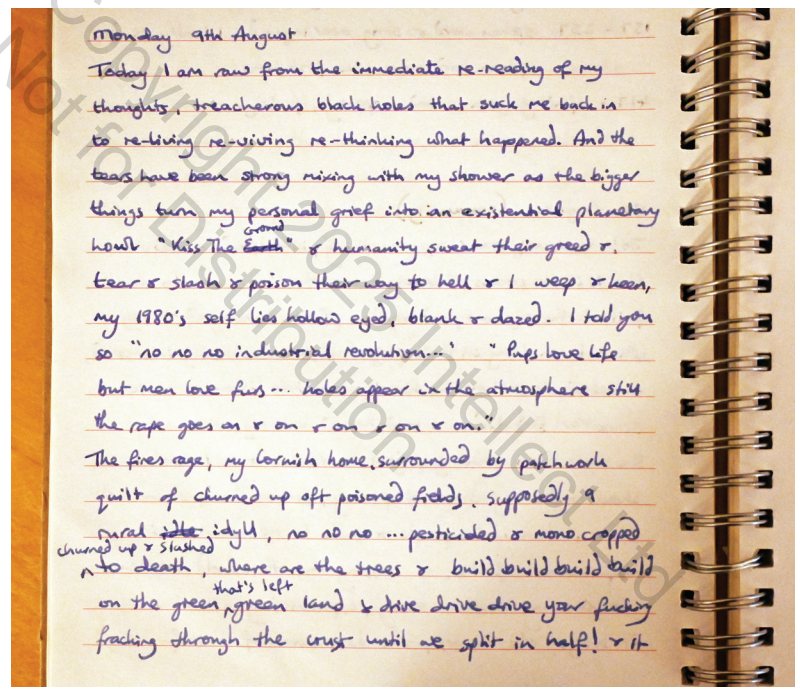 Monday 9th August
Today I am raw from the immediate re-reading of my
thoughts, treacherous black holes that suck me back in
to re-living re-viving re-thinking what happened. And the
tears have been strong mixing with my shower as the bigger
things turn my personal grief into an existential planetary
howl. "Kiss The Earth Ground" & humanity sweat their greed &
tear & slash & poison their way to hell & I weep & keen,
my 1980's self lies hollow eyed, blank & dazed. I told you
so "no no no industrial revolution..." "Pups love life
but men love furs... holes appear in the atmosphere still
the rape goes on & on & on & on & on."
The fires rage, my Cornish home, surrounded by patchwork
quilt of churned up oft poisoned fields. Supposedly a
rural idle idyll, no no no ... pesticided & mono cropped
churned up & slashed
to death, where are the trees & build build build build
on the green that's left green land & drive drive drive your fucking
fracking through the crust until we split in half! & it
Copyright 2025 Intellect Ltd
Not for Distribution